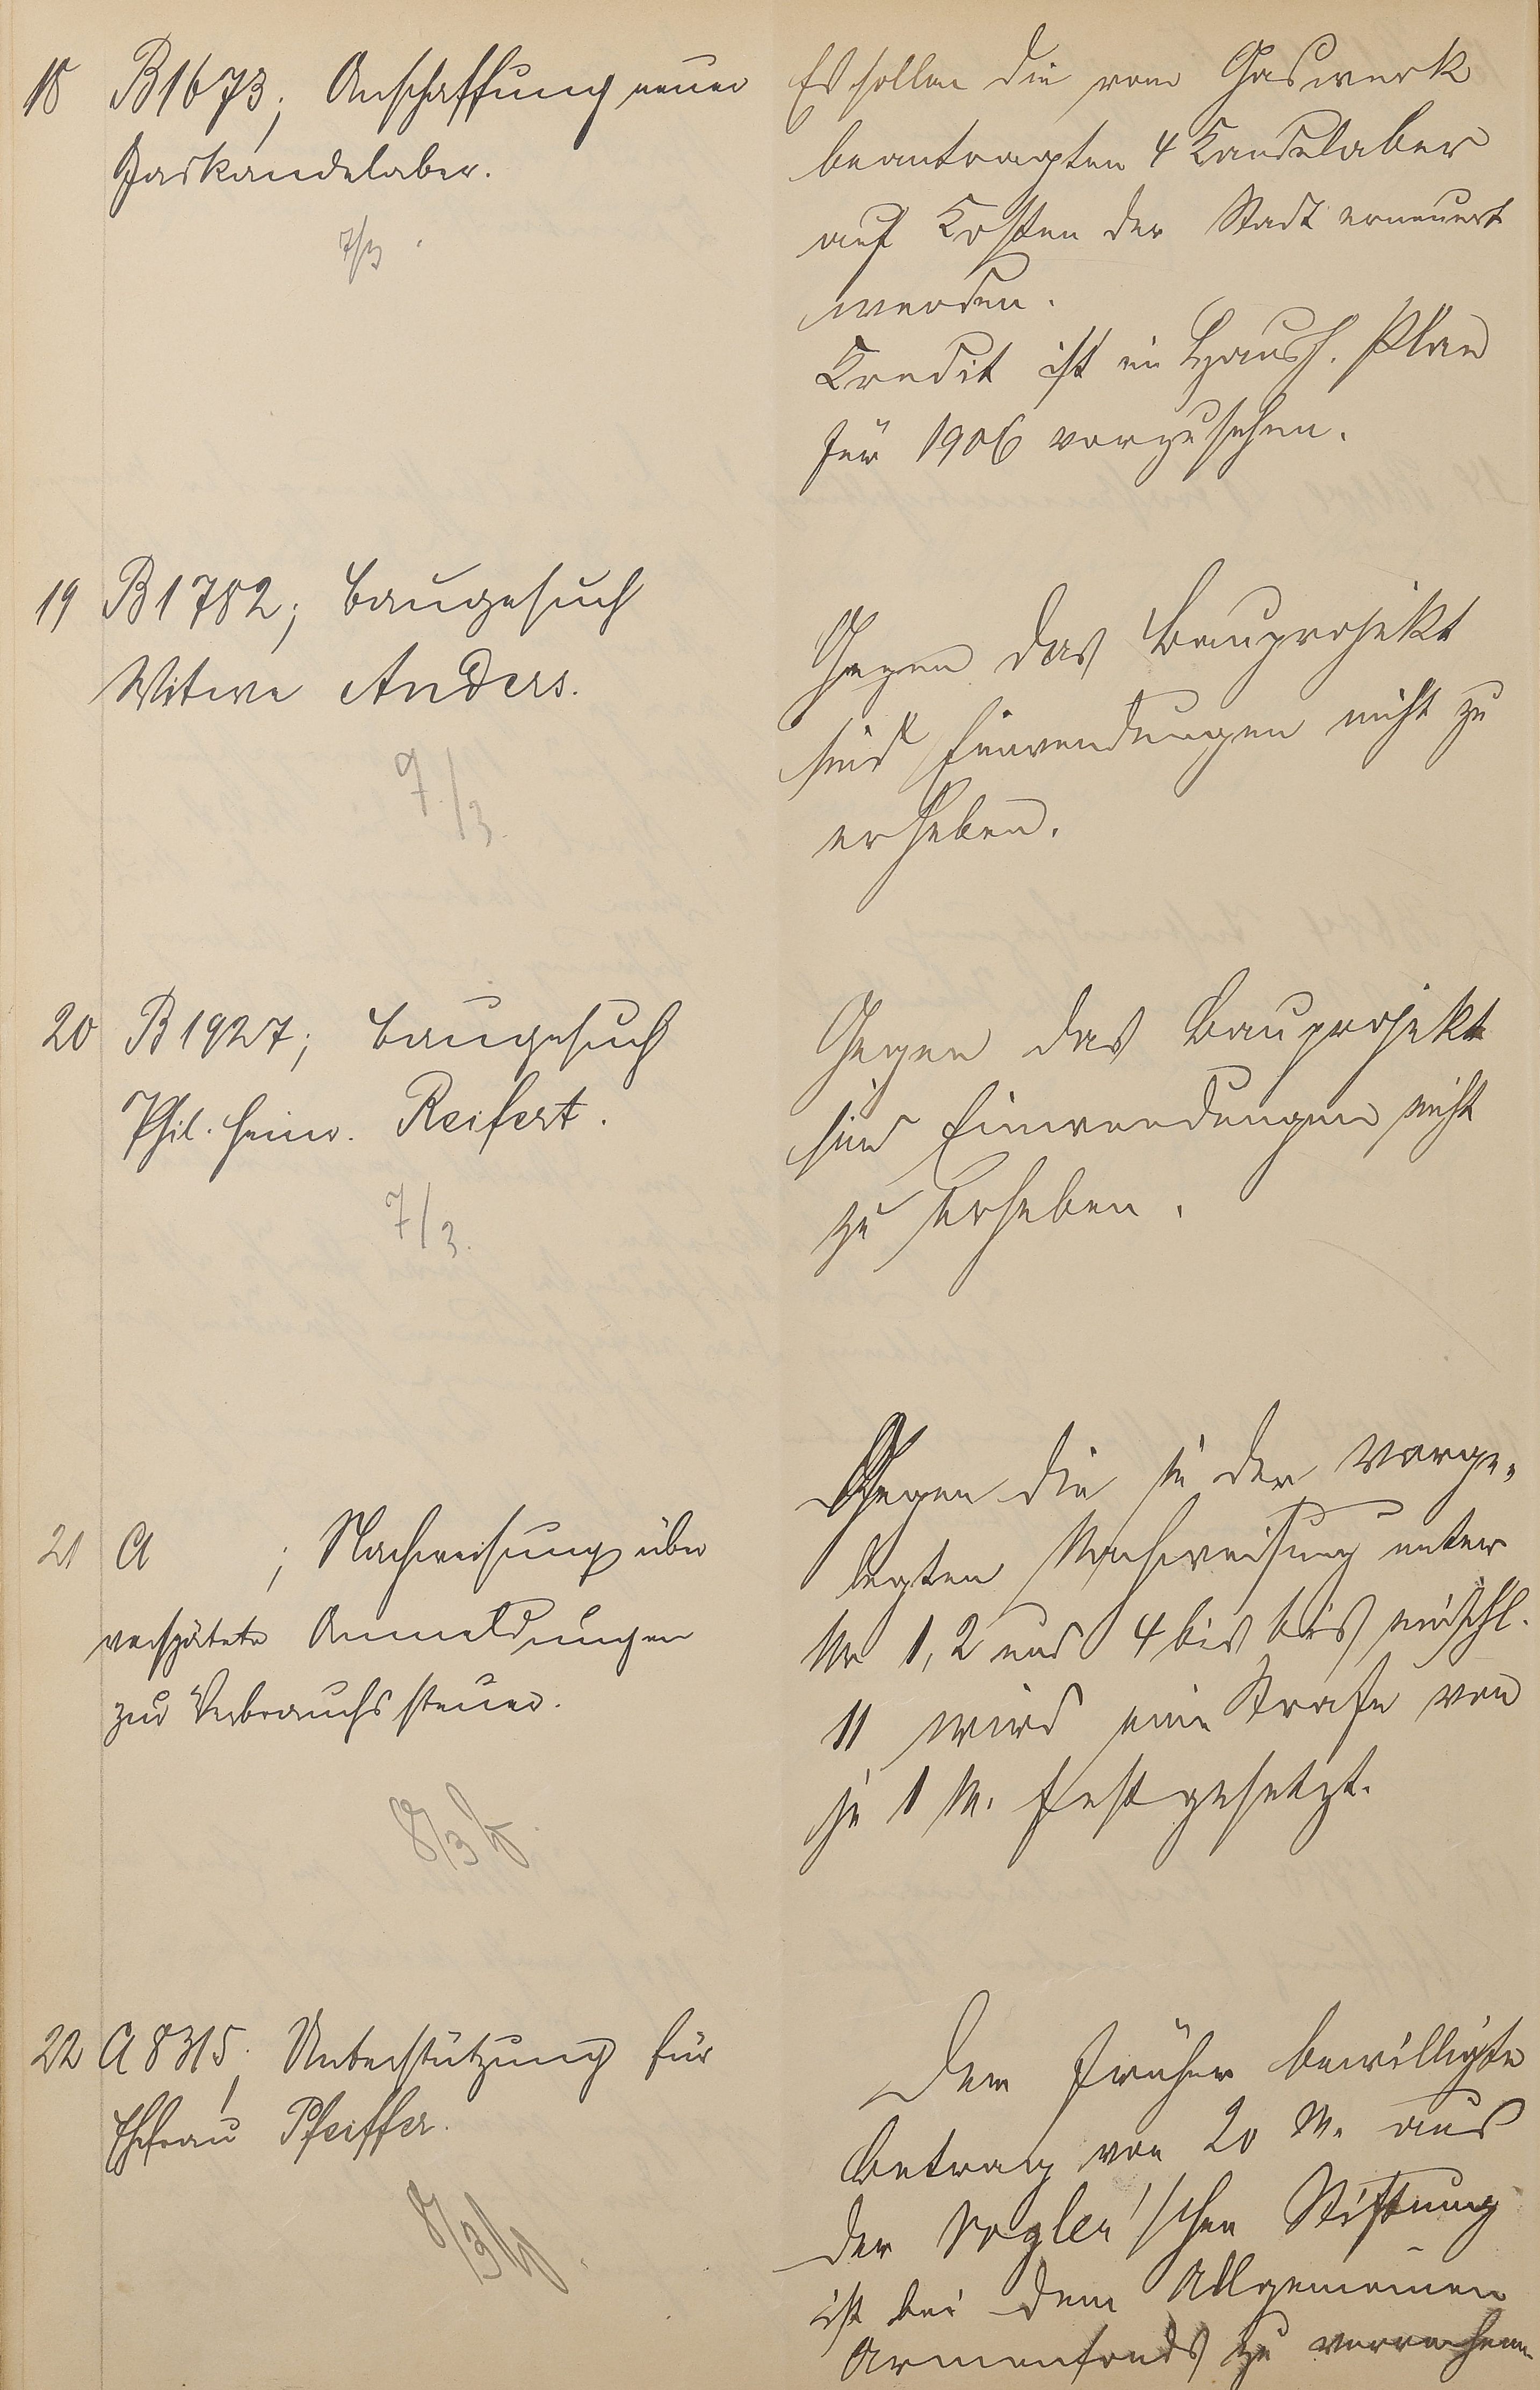 18 B 1673; Anschaffung neuer
Gaskandelaber.
7/3
Es sollen die vom Gaswerk
beantragten 4 Kandelaber
auf Kosten der Stadt erneuert
werden.
Kredit ist im Haush. Plan
für 1906 vorzusehen.
19 B 1782; Baugesuch
Witwe Anders.
7/3.
Gegen das Bauprojekt
sind Einwendungen nicht zu
erheben.
20 B 1927; Baugesuch
Phil. Heinr. Reifert.
7/3.
Gegen das Bauprojekt
sind Einwendungen nicht
zu erheben.
21 A ; Nachweisung über
verspätete Anmeldungen
zur Verbrauchssteuer.
8/3
Gegen die in der vorge-
legten Nachweisung unter
Nr 1, 2 und 4 bis bis einschl.
11 wird eine Strafe von
je 1 M. festgesetzt.
22 A 8315; Unterstützung für
Ehefrau Pfeiffer.
8/3
Der früher bewilligte
Betrag von 20 M. aus
der Vogler'schen Stiftung
ist bei dem Allgemeinen
Armenfonds zu verrechnen